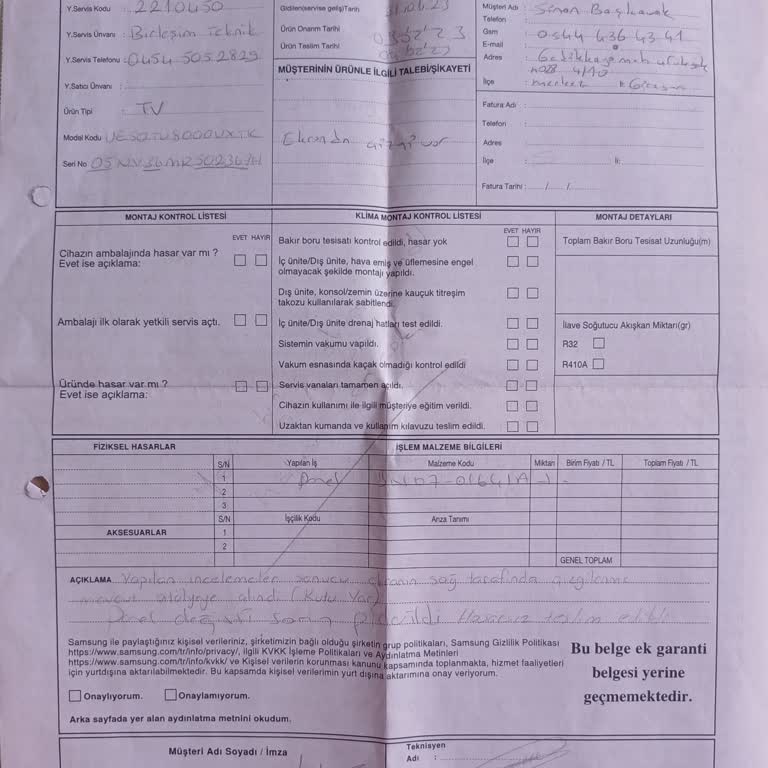 Y.Servis Kodu : 2210450
Y.Servis Ünvanı : Birleşim Teknik
Y.Servis Telefonu : 0454 505 2829
Y.Satıcı Ünvanı :
Ürün Tipi : TV
Model Kodu
Seri No
Gidilen(servise geliş)Tarih
Ürün Onarım Tarihi
Ürün Teslim Tarihi
MÜŞTERİNİN ÜRÜNLE İLGİLİ TALEBİ/ŞİKAYETİ
Müşteri Adı : Sinan
Telefon :
Gsm : 0544 636 4341
E-mail :
Adres :
İlçe : merkez İl: Giresun
Fatura Adı :
Telefon :
Adres :
İlçe : İl:
Fatura Tarihi : / /
MONTAJ KONTROL LİSTESİ
EVET HAYIR
Cihazın ambalajında hasar var mı ?
Evet ise açıklama:
Ambalajı ilk olarak yetkili servis açtı.
Üründe hasar var mı ?
Evet ise açıklama:
KLİMA MONTAJ KONTROL LİSTESİ
EVET HAYIR
Bakır boru tesisatı kontrol edildi, hasar yok
İç ünite/Dış ünite, hava emiş ve üflemesine engel
olmayacak şekilde montajı yapıldı.
Dış ünite, konsol/zemin üzerine kauçuk titreşim
takozu kullanılarak sabitlendi.
İç ünite/Dış ünite drenaj hatları test edildi.
Sistemin vakumu yapıldı.
Vakum esnasında kaçak olmadığı kontrol edildi
Servis vanaları tamamen açıldı.
Cihazın kullanımı ile ilgili müşteriye eğitim verildi.
Uzaktan kumanda ve kullanım kılavuzu teslim edildi.
MONTAJ DETAYLARI
Toplam Bakır Boru Tesisat Uzunluğu(m)
İlave Soğutucu Akışkan Miktarı(gr)
R32
R410A
FİZİKSEL HASARLAR
AKSESUARLAR
İŞLEM MALZEME BİLGİLERİ
S/N Yapılan İş Malzeme Kodu Miktarı Birim Fiyatı / TL Toplam Fiyatı / TL
1 Panel
2
3
S/N İşçilik Kodu Arıza Tanımı
1
2
GENEL TOPLAM
AÇIKLAMA Yapılan incelemeler sonucu ekranın sağ tarafında
mevcut atölyeye alındı (Kutu Var)
Panel Hasarsız teslim edildi
Samsung ile paylaştığınız kişisel verileriniz, şirketimizin bağlı olduğu şirketin grup politikaları, Samsung Gizlilik Politikası
https://www.samsung.com/tr/info/privacy/, ilgili KVKK İşleme Politikaları ve Aydınlatma Metinleri
https://www.samsung.com/tr/info/kvkk/ ve Kişisel verilerin korunması kanunu kapsamında toplanmakta, hizmet faaliyetleri
için yurtdışına aktarılabilmektedir. Bu kapsamda kişisel verilerimin yurt dışına aktarımına onay veriyorum.
Onaylıyorum. Onaylamıyorum.
Arka sayfada yer alan aydınlatma metnini okudum.
Bu belge ek garanti
belgesi yerine
geçmemektedir.
Müşteri Adı Soyadı / İmza
Teknisyen
Adı :